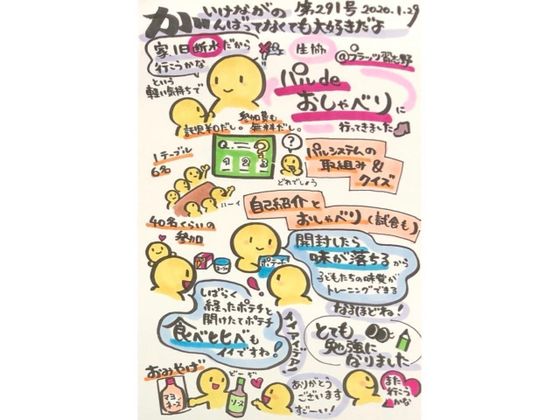 がいけながの
んばってなくても大好きだよ
第291号 2020.1.29
家1日断水だから
行こうかな
という
軽い気持ちで
生協
@プラッツ習志野
パルde
おしゃべりに
行ってきました
託児¥0だし。
参加費も
無料だし。
1テーブル
6名
Q
?
1 2 3
?
どれでしょう
パルシステムの
取組み&
クイズ
ハーイ
自己紹介と
おしゃべり(試食も)
40名くらいの
参加
ポテチ
開封したら
味が落ちるから
子どもたちの味覚が
トレーニングできる
なるほどね!
しばらく
経ったポテチと
開けたてポテチ
食べ比べも
イイですね!
とても
勉強に
なりました
おみやげ
マヨネーズ
どーぞ
ソース
ありがとう
ございます
すごーい!
また
行こう
かな